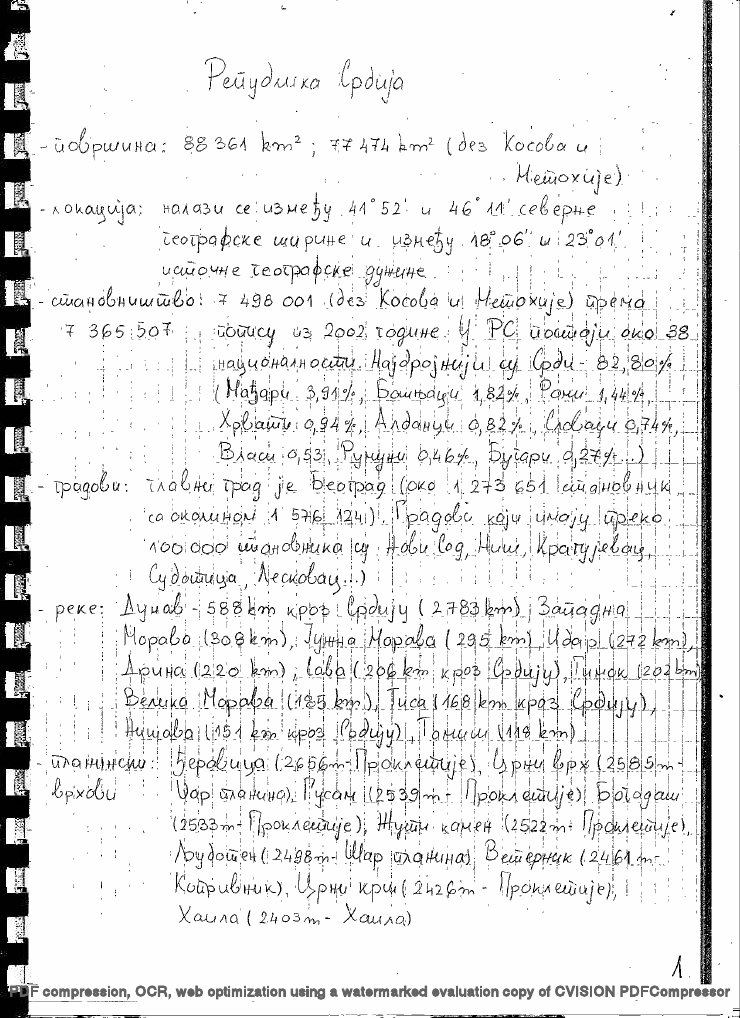 Република Србија
- површина: 88 361 km² ; 77 474 km² (без Косова и
Метохије)
- локација: налази се између 41°52' и 46°11' северне
географске ширине и између 18°06' и 23°01'
источне географске дужине
- становништво: 7 498 001 (без Косова и Метохије) према
7 365 507 попису из 2002 године. У РС постоји око 38
националности. Најбројнији су Срби - 82,80%
(Мађари 3,91%, Бошњаци 1,82%, Роми 1,44%,
Хрвати 0,94%, Албанци 0,82%, Словаци 0,74%,
Власи 0,53, Румуни 0,46%, Бугари 0,27%...)
- градови: главни град је Београд (око 1 273 651 становник
са околином 1 576 124). Градови који имају преко
100 000 становника су Нови Сад, Ниш, Крагујевац,
Суботица, Лесковац...)
- реке: Дунав - 588 km кроз Србију (2783 km), Западна
Морава (308 km), Јужна Морава (295 km), Ибар (272 km),
Дрина (220 km), Сава (206 km кроз Србију), Тимок (202 km)
Велика Морава (185 km), Тиса (168 km кроз Србију),
Нишава (151 km кроз Србију), Тамиш (118 km)
- планински: Ђеравица (2656 m - Проклетије), Црни врх (2585 m -
врхови Шар планина), Гусам (2539 m - Проклетије) Богдаш
(2533 m - Проклетије), Жути камен (2522 m - Проклетије),
Љуботен (2498 m - Шар планина), Ветерник (2461 m -
Копривник), Црни крш (2426 m - Проклетије),
Хаила (2403 m - Хаила)
1
PDF compression, OCR, web optimization using a watermarked evaluation copy of CVISION PDFCompressor